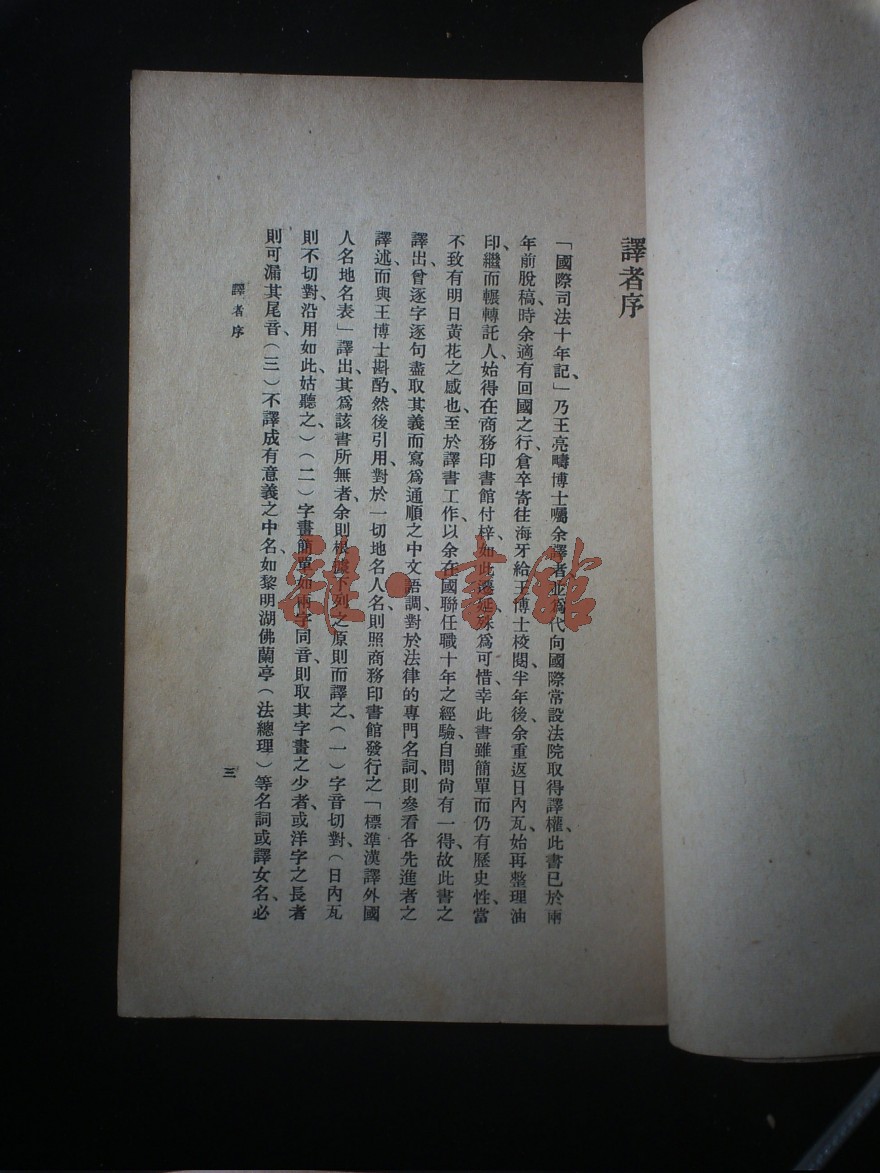 譯者序
「國際司法十年記、」乃王亮疇博士囑余譯者、並爲代向國際常設法院取得譯權、此書已於兩
年前脫稿、時余適有回國之行、倉卒寄往海牙給王博士校閱、半年後、余重返日內瓦、始再整理油
印、繼而輾轉託人、始得在商務印書館付梓、如此遷延、殊爲可惜、幸此書雖簡單、而仍有歷史性、當
不致有明日黃花之感也、至於譯書工作、以余在國聯任職十年之經驗、自問尙有一得、故此書之
譯出、曾逐字逐句、盡取其義、而寫爲通順之中文語調、對於法律的專門名詞、則參看各先進者之
譯述、而與王博士斟酌、然後引用、對於一切地名人名、則照商務印書館發行之「標準漢譯外國
人名地名表」譯出、其爲該書所無者、余則根據下列之原則而譯之、(一)字音切對、(日內瓦
則不切對、沿用如此、姑聽之、)(二)字畫簡單、如兩字同音、則取其字畫之少者、或洋字之長者
則可漏其尾音、(三)不譯成有意義之中名、如黎明湖佛蘭亭(法總理)等名詞、或譯女名、必
譯者序
三
雜·書館